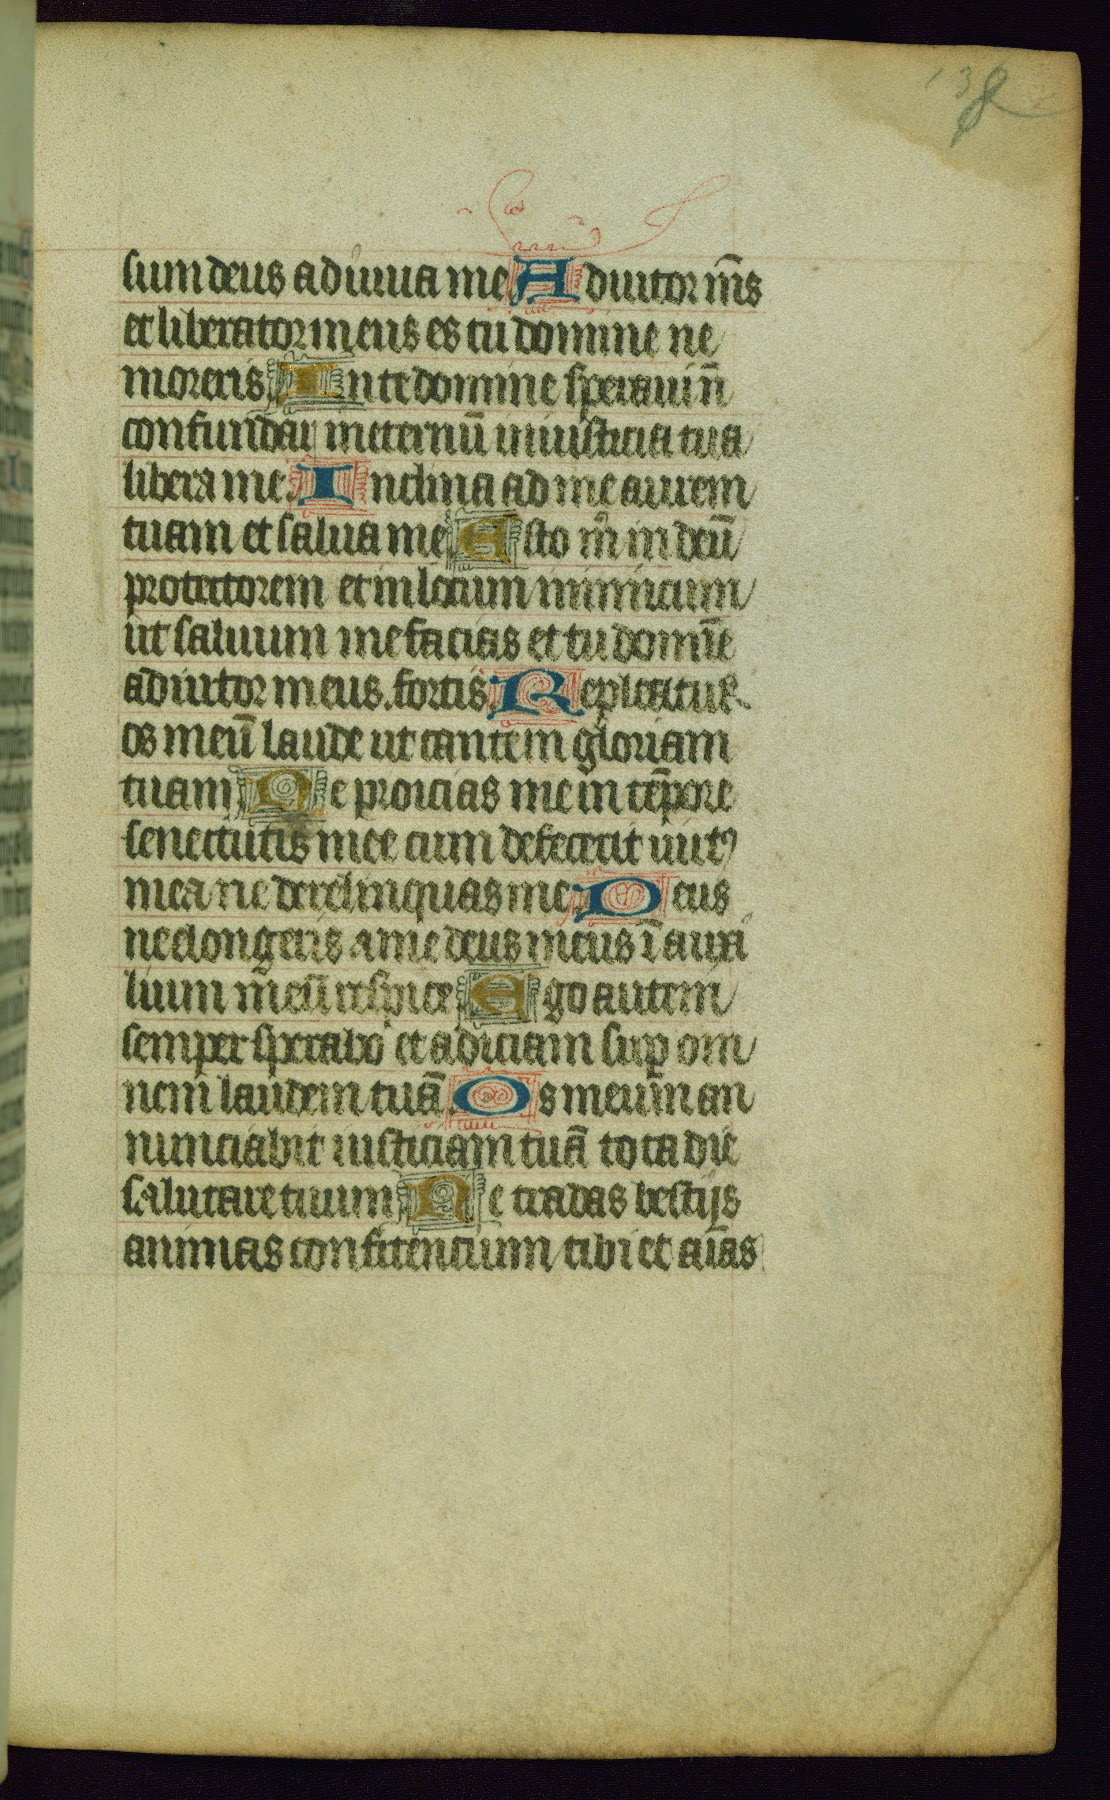 138
sum deus adiuua me Adiutor mēs
et liberator meus es tu domine ne
moreris In te domine speraui nō
confundar in eternū in iusticia tua
libera me. Inclina ad me aurem
tuam et salua me Esto m in deū
protectorem et in locum munitum
ut saluum me facias et tu domīe
adiutor meus. fortis. Repleatur
os meū laude ut cantem gloriam
tuam Ne proicias me in tēpore
senectutis mee cum defecerit uirtꝰ
mea ne derelinquas me. Deus
ne elongeris a me deus meus ī auxi
lium meū respice Ego autem
semper sperabo et adiciam suꝑ om
nem laudem tuā. Os meum an
nunciabit iusticiam tuā tota die
salutare tuum Ne tradas bestijs
animas confitencium tibi et aīas